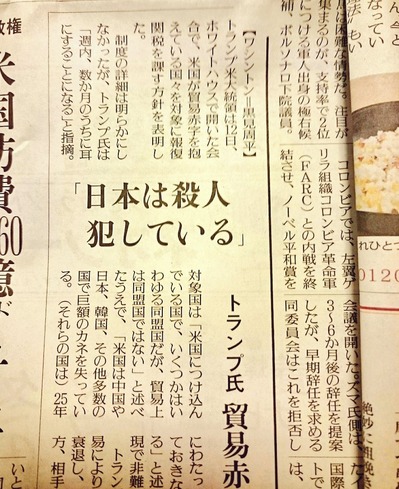 なってい
は困難な情勢だ。注目が
集まるのが、支持率で2位
につける軍人出身の極右候
補、ボルソナロ下院議員。
コロンビアでは、左翼ゲ
リラ組織コロンビア革命軍
（FARC）との内戦を終
結させ、ノーベル平和賞を
会議を開いた。ズマ氏側は、
3〜6か月後の辞任を提案
したが、早期辞任を求める
同委員会はこれを拒否し
国際
トで
は、
れひとつ
0120
絶妙に粗挽き
トランプ氏 貿易赤
「日本は殺人
犯している」
【ワシントン＝黒見周平】
トランプ米大統領は12日、
ホワイトハウスで開いた会
合で、米国が貿易赤字を抱
えている国々を対象に報復
関税を課す方針を表明し
た。
制度の詳細は明らかにし
なかったが、トランプ氏は
「週内、数か月のうちに耳
にすることになる」と指摘。
対象国は「米国につけ込ん
でいる国で、いくつかはい
わゆる同盟国だが、貿易上
は同盟国ではない」と述べ
たうえで、「米国は中国や
日本、韓国、その他多数の
国で巨額のカネを失ってい
る。（それらの国は）25年
にわたっ
ておきな
る」と述
現で非難
トラン
易により
衰退し、
方、相手
政権
米国防費
60億ド